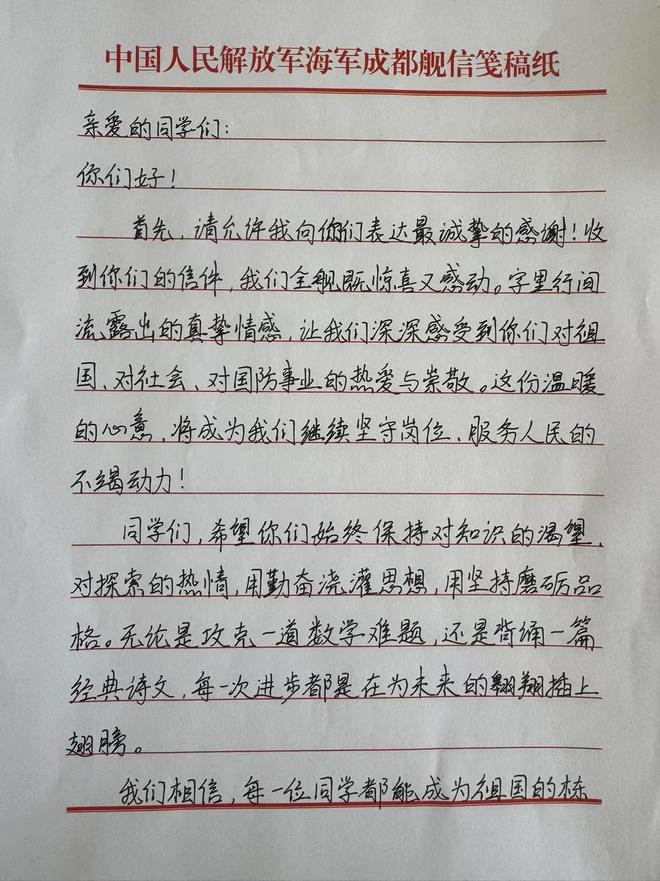 中国人民解放军海军成都舰信笺稿纸
亲爱的同学们：
你们好！
首先，请允许我向你们表达最诚挚的感谢！收
到你们的信件，我们全舰既惊喜又感动。字里行间
流露出的真挚情感，让我们深深感受到你们对祖
国、对社会、对国防事业的热爱与崇敬。这份温暖
的心意，将成为我们继续坚守岗位、服务人民的
不竭动力！
同学们，希望你们始终保持对知识的渴望、
对探索的热情，用勤奋浇灌思想，用坚持磨砺品
格。无论是攻克一道数学难题，还是背诵一篇
经典诗文，每一次进步都是在为未来的翱翔插上
翅膀。
我们相信，每一位同学都能成为祖国的栋